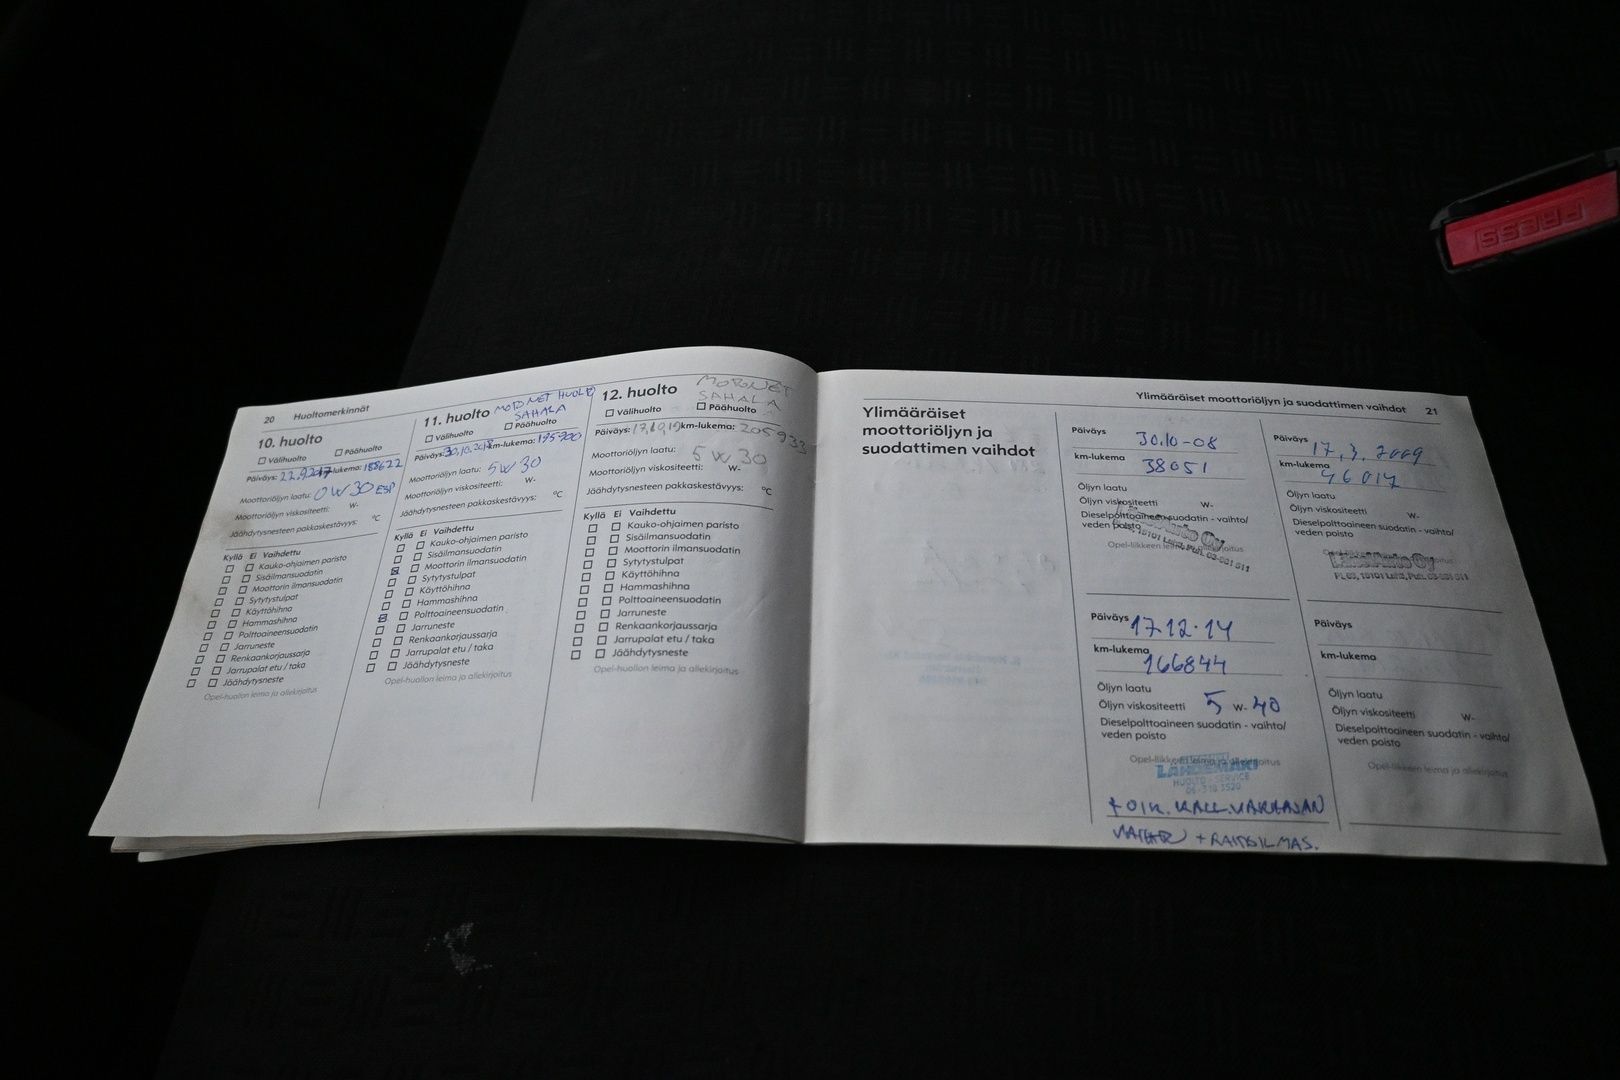 20 Huoltomerkinnät
10. huolto
Välihuolto Päähuolto
Päiväys: 22.9.2017 km-lukema: 188622
Moottoriöljyn laatu: 0W30 ESP
Moottoriöljyn viskositeetti: W-
Jäähdytysnesteen pakkaskestävyys: °C
Kyllä Ei Vaihdettu
Kauko-ohjaimen paristo
Sisäilmansuodatin
Moottorin ilmansuodatin
Sytytystulpat
Käyttöhihna
Hammashihna
Polttoaineensuodatin
Jarruneste
Renkaankorjaussarja
Jarrupalat etu / taka
Jäähdytysneste
Opel-huollon leima ja allekirjoitus
11. huolto
SAHALA
Välihuolto Päähuolto
Päiväys: 30.10.2018 km-lukema: 195700
Moottoriöljyn laatu: 5W30
Moottoriöljyn viskositeetti: W-
Jäähdytysnesteen pakkaskestävyys: °C
Kyllä Ei Vaihdettu
Kauko-ohjaimen paristo
Sisäilmansuodatin
Moottorin ilmansuodatin
Sytytystulpat
Käyttöhihna
Hammashihna
Polttoaineensuodatin
Jarruneste
Renkaankorjaussarja
Jarrupalat etu / taka
Jäähdytysneste
Opel-huollon leima ja allekirjoitus
12. huolto
SAHALA
Välihuolto Päähuolto
Päiväys: 17.10.19 km-lukema: 205933
Moottoriöljyn laatu: 5W30
Moottoriöljyn viskositeetti: W-
Jäähdytysnesteen pakkaskestävyys: °C
Kyllä Ei Vaihdettu
Kauko-ohjaimen paristo
Sisäilmansuodatin
Moottorin ilmansuodatin
Sytytystulpat
Käyttöhihna
Hammashihna
Polttoaineensuodatin
Jarruneste
Renkaankorjaussarja
Jarrupalat etu / taka
Jäähdytysneste
Opel-huollon leima ja allekirjoitus
Ylimääräiset moottoriöljyn ja suodattimen vaihdot 21
Ylimääräiset
moottoriöljyn ja
suodattimen vaihdot
Päiväys 30.10-08
km-lukema 38051
Öljyn laatu
Öljyn viskositeetti W-
Dieselpolttoaineen suodatin - vaihto/
veden poisto
Opel-liikkeen leima ja allekirjoitus
Päiväys 17.3.2009
km-lukema 46014
Öljyn laatu
Öljyn viskositeetti W-
Dieselpolttoaineen suodatin - vaihto/
veden poisto
Päiväys 17.12.14
km-lukema 166844
Öljyn laatu
Öljyn viskositeetti 5 W- 40
Dieselpolttoaineen suodatin - vaihto/
veden poisto
Opel-liikkeen leima ja allekirjoitus
LÄHDEMÄKI
HUOLTO - SERVICE
Päiväys
km-lukema
Öljyn laatu
Öljyn viskositeetti W-
Dieselpolttoaineen suodatin - vaihto/
veden poisto
Opel-liikkeen leima ja allekirjoitus
PRESS